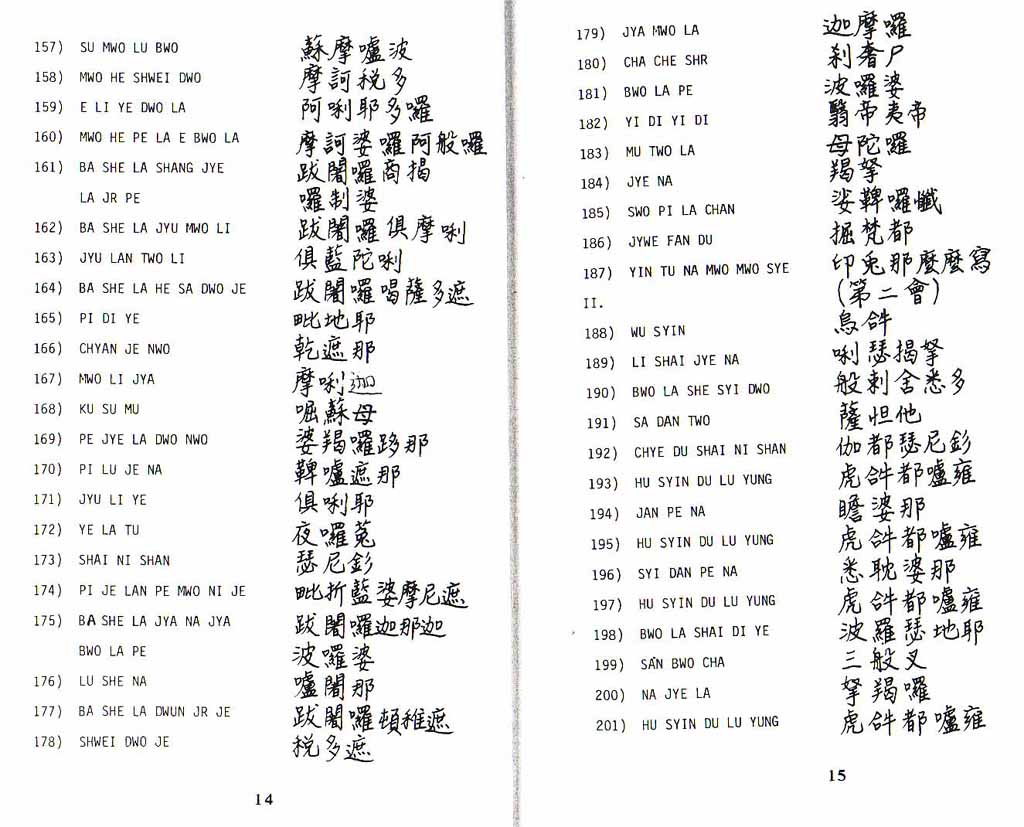 157) SU MWO LU BWO 蘇摩嚧波
158) MWO HE SHWEI DWO 摩訶稅多
159) E LI YE DWO LA 阿唎耶多囉
160) MWO HE PE LA E BWO LA 摩訶婆囉阿般囉
161) BA SHE LA SHANG JYE 跋闍囉商揭
LA JR PE 囉制婆
162) BA SHE LA JYU MWO LI 跋闍囉俱摩唎
163) JYU LAN TWO LI 俱藍陀唎
164) BA SHE LA HE SA DWO JE 跋闍囉喝薩多遮
165) PI DI YE 毗地耶
166) CHYAN JE NWO 乾遮那
167) MWO LI JYA 摩唎迦
168) KU SU MU 啒蘇母
169) PE JYE LA DWO NWO 婆羯囉跢那
170) PI LU JE NA 鞞嚧遮那
171) JYU LI YE 俱唎耶
172) YE LA TU 夜囉菟
173) SHAI NI SHAN 瑟尼釤
174) PI JE LAN PE MWO NI JE 毗折藍婆摩尼遮
175) BA SHE LA JYA NA JYA 跋闍囉迦那迦
BWO LA PE 波囉婆
176) LU SHE NA 嚧闍那
177) BA SHE LA DWUN JR JE 跋闍囉頓稚遮
178) SHWEI DWO JE 稅多遮
14
179) JYA MWO LA 迦摩囉
180) CHA CHE SHR 剎奢尸
181) BWO LA PE 波囉婆
182) YI DI YI DI 翳帝夷帝
183) MU TWO LA 母陀囉
184) JYE NA 羯拏
185) SWO PI LA CHAN 娑鞞囉懺
186) JYWE FAN DU 掘梵都
187) YIN TU NA MWO MWO SYE 印兎那麼麼寫
II. (第二會)
188) WU SYIN 烏𤙖
189) LI SHAI JYE NA 唎瑟揭拏
190) BWO LA SHE SYI DWO 般剌舍悉多
191) SA DAN TWO 薩怛他
192) CHYE DU SHAI NI SHAN 伽都瑟尼釤
193) HU SYIN DU LU YUNG 虎𤙖都嚧雍
194) JAN PE NA 瞻婆那
195) HU SYIN DU LU YUNG 虎𤙖都嚧雍
196) SYI DAN PE NA 悉耽婆那
197) HU SYIN DU LU YUNG 虎𤙖都嚧雍
198) BWO LA SHAI DI YE 波羅瑟地耶
199) SAN BWO CHA 三般叉
200) NA JYE LA 拏羯囉
201) HU SYIN DU LU YUNG 虎𤙖都嚧雍
15